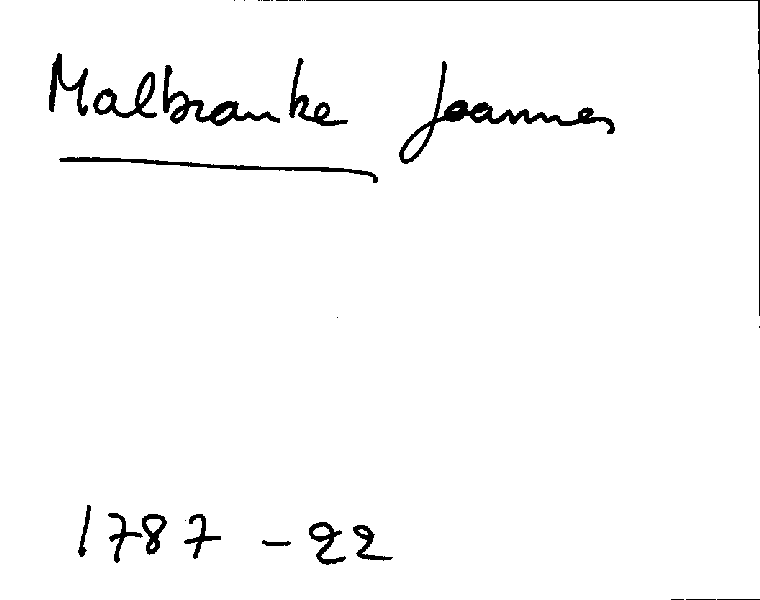 Malbranke Joannes
1787 - 22